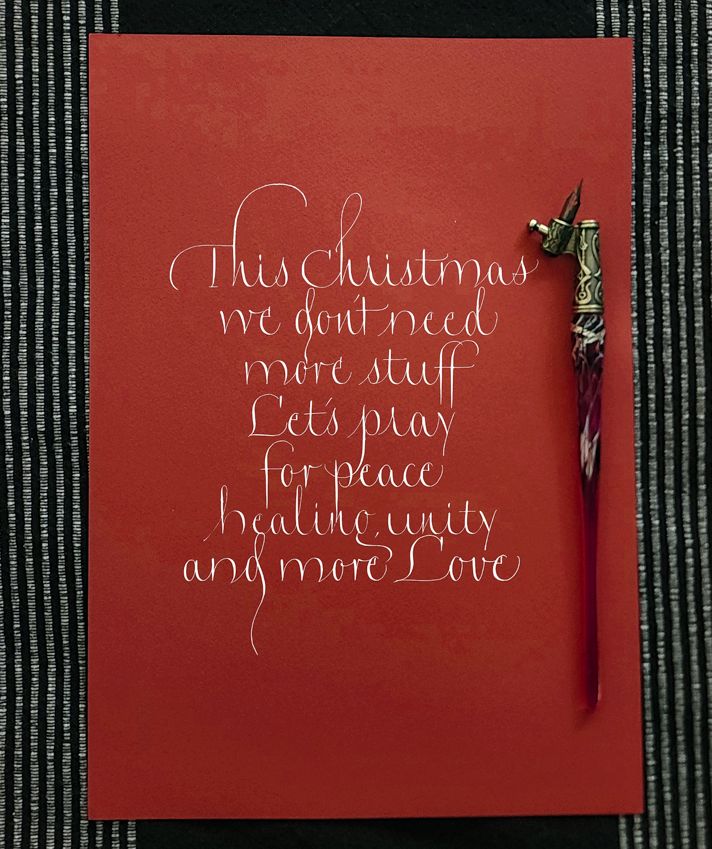 This Christmas
we don't need
more stuff
Let's pray
for peace
healing, unity
and more Love